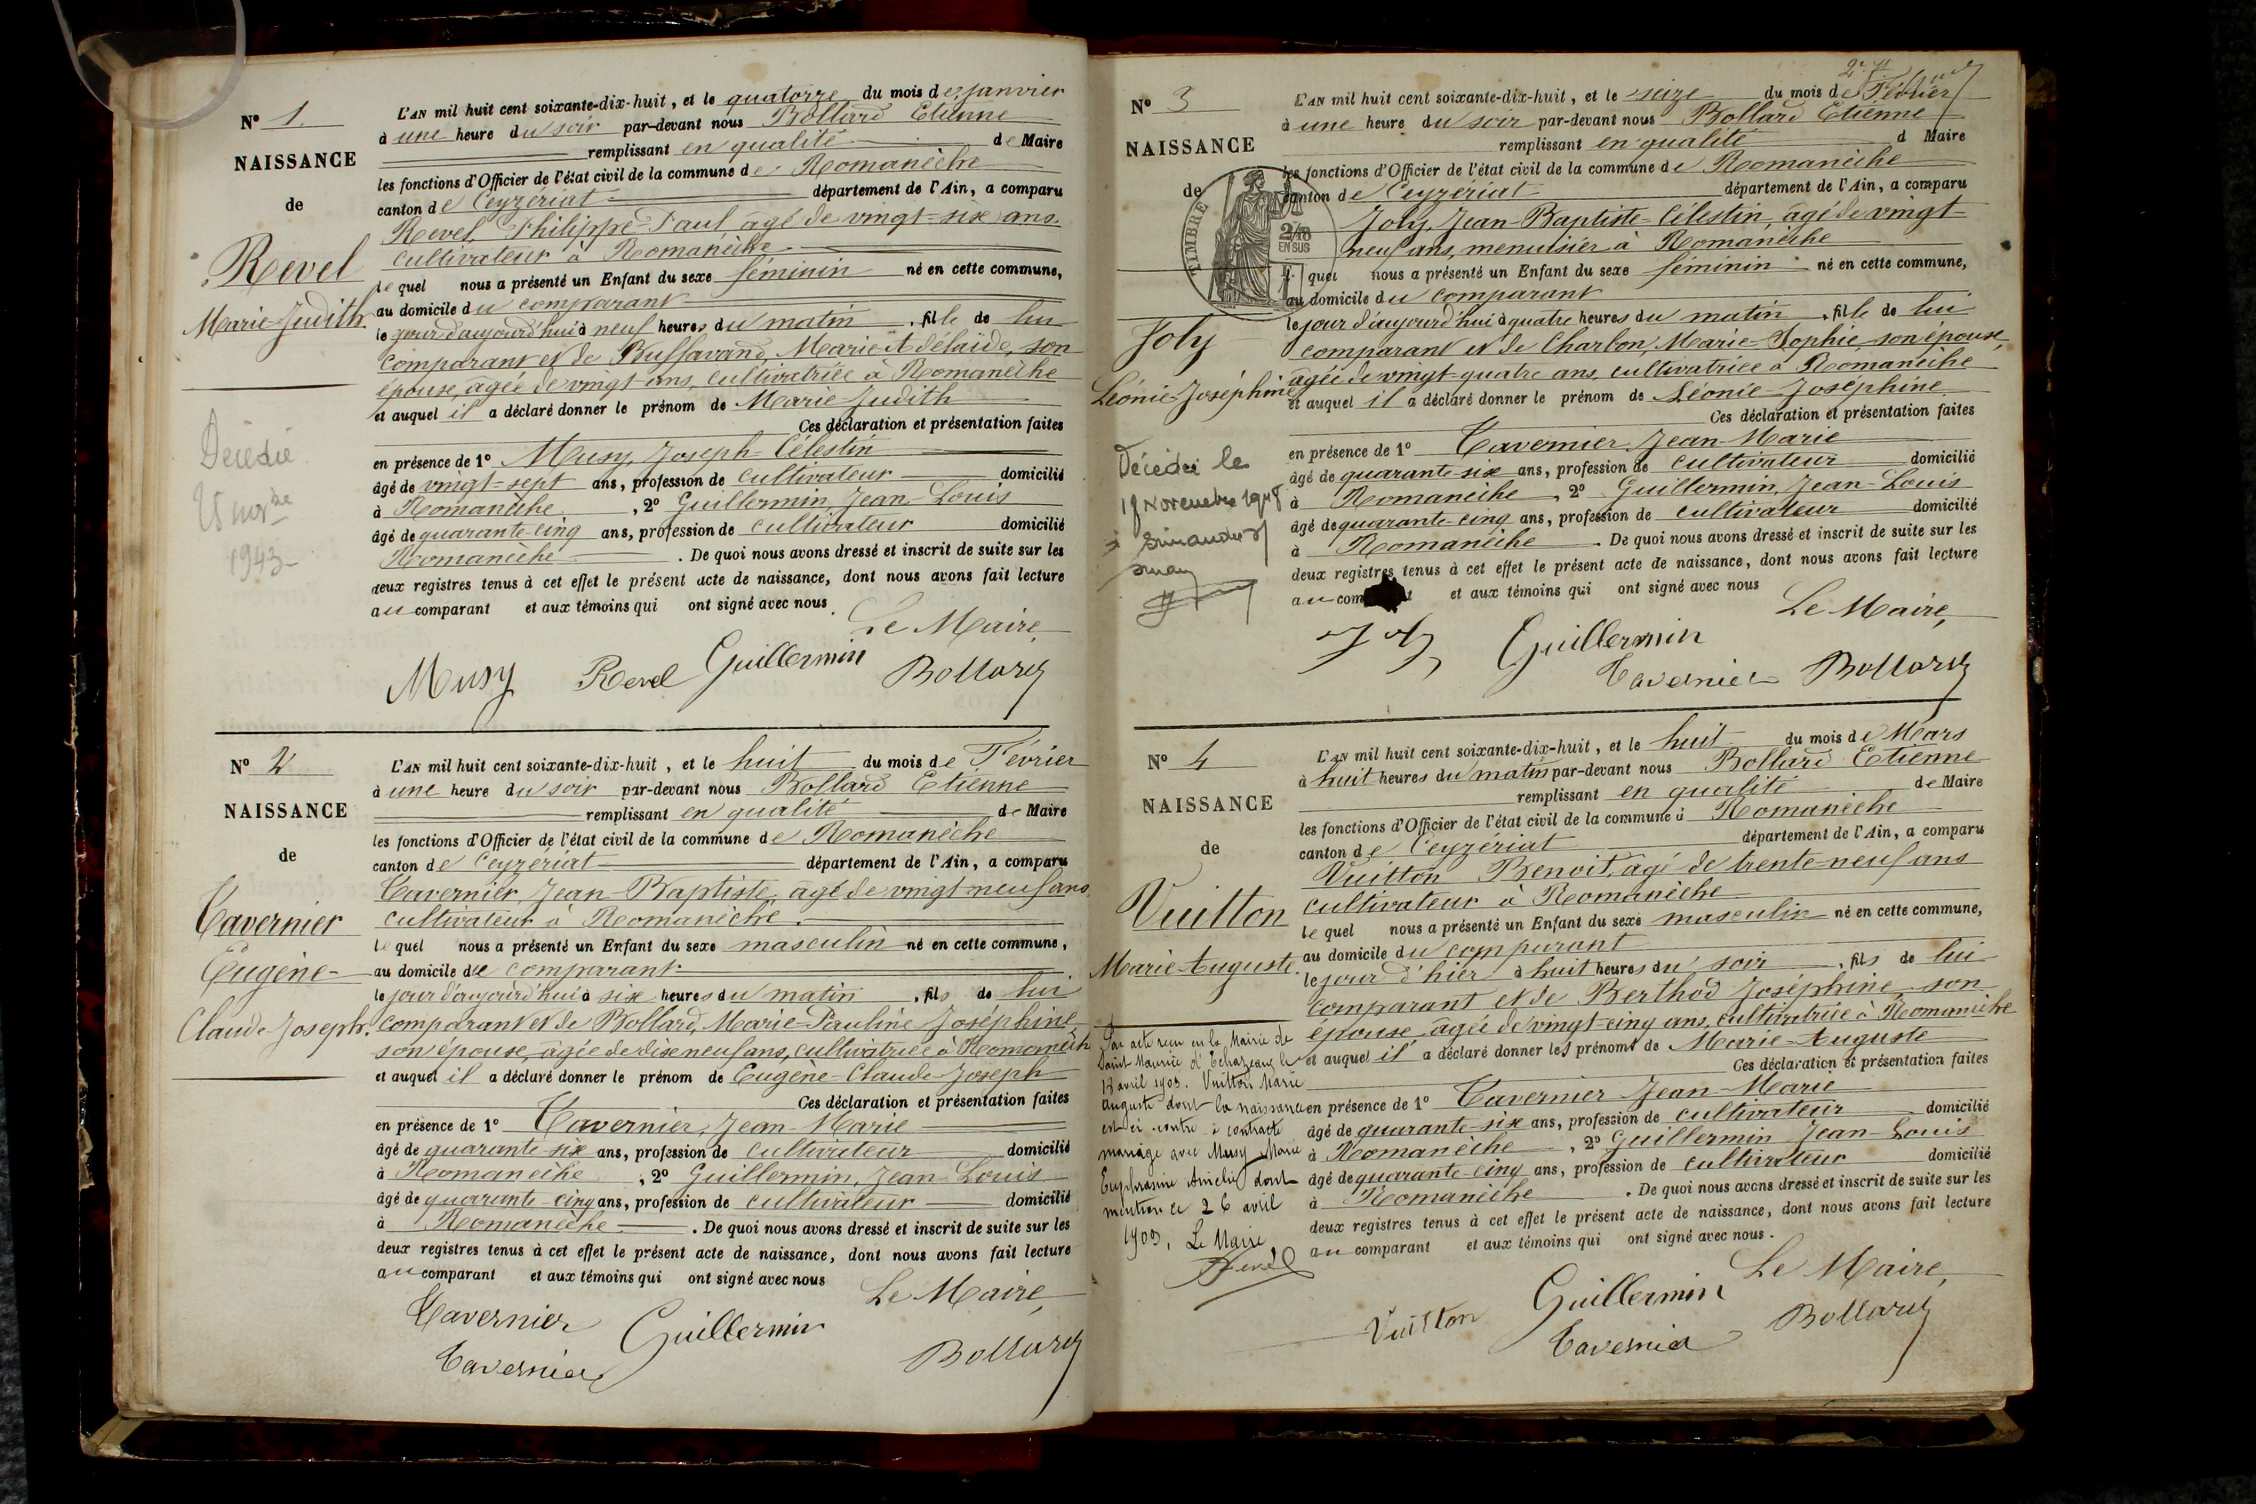 N° 1
NAISSANCE
de
Revel
Marie-Judith.
Décédée
1943
L'AN mil huit cent soixante-dix-huit, et le quatorze du mois de Janvier
à une heure du soir par-devant nous Bollard Etienne
remplissant en qualité de Maire
les fonctions d'Officier de l'état civil de la commune de Romanèche
canton de Ceyzériat département de l'Ain, a comparu
Revel, Philippe-Paul âgé de vingt-six ans.
cultivateur à Romanèche
lequel nous a présenté un Enfant du sexe féminin né en cette commune,
au domicile du comparant
le jour d'aujourd'hui à neuf heures du matin, fille de lui
comparant et de Buffavand, Marie Adelaide, son
épouse, âgée de vingt ans, cultivatrice à Romanèche
et auquel il a déclaré donner le prénom de Marie Judith
Ces déclaration et présentation faites
en présence de 1° Musy, Joseph-Célestin
âgé de vingt-sept ans, profession de cultivateur domicilié
à Romanèche, 2° Guillermin, Jean-Louis
âgé de quarante-cinq ans, profession de cultivateur domicilié
Romanèche. De quoi nous avons dressé et inscrit de suite sur les
deux registres tenus à cet effet le présent acte de naissance, dont nous avons fait lecture
au comparant et aux témoins qui ont signé avec nous.
Le Maire,
Musy Revel Guillermin Bollard
N° 2
NAISSANCE
de
Tavernier
Eugène-
Claude-Joseph.
L'AN mil huit cent soixante-dix-huit, et le huit du mois de Février
à une heure du soir par-devant nous Bollard Etienne
remplissant en qualité de Maire
les fonctions d'Officier de l'état civil de la commune de Romanèche
canton de Ceyzériat département de l'Ain, a comparu
Tavernier, Jean-Baptiste, âgé de vingt-neuf ans
cultivateur à Romanèche.
lequel nous a présenté un Enfant du sexe masculin né en cette commune,
au domicile de comparant
le jour d'aujourd'hui à six heures du matin, fils de lui
comparant et de Bollard, Marie-Pauline Joséphine,
son épouse, âgée de dixneuf ans, cultivatrice à Romanèche
et auquel il a déclaré donner le prénom de Eugène-Claude-Joseph
Ces déclaration et présentation faites
en présence de 1° Tavernier, Jean-Marie
âgé de quarante six ans, profession de cultivateur domicilié
à Romanèche, 2° Guillermin, Jean-Louis
âgé de quarante-cinq ans, profession de cultivateur domicilié
à Romanèche. De quoi nous avons dressé et inscrit de suite sur les
deux registres tenus à cet effet le présent acte de naissance, dont nous avons fait lecture
au comparant et aux témoins qui ont signé avec nous
Le Maire,
Tavernier Guillermin
Tavernier Bollard
N° 3
NAISSANCE
de
TIMBRE
2/10
EN SUS
Joly
Léonie-Joséphine
Décédée le
19 Novembre 1918
à Simandre s/
suran
L'AN mil huit cent soixante-dix-huit, et le seize du mois de Février
à une heure du soir par-devant nous Bollard Etienne
remplissant en qualité d Maire
les fonctions d'Officier de l'état civil de la commune de Romanèche
canton de Ceyzériat département de l'Ain, a comparu
Joly, Jean-Baptiste-Célestin, âgé de vingt-
neuf ans, menuisier à Romanèche
quel nous a présenté un Enfant du sexe féminin né en cette commune,
au domicile du comparant
le jour d'aujourd'hui à quatre heures du matin, fille de lui
comparant et de Charbon, Marie-Sophie, son épouse,
âgée de vingt-quatre ans, cultivatrice à Romanèche
et auquel il a déclaré donner le prénom de Léonie-Joséphine
Ces déclaration et présentation faites
en présence de 1° Tavernier Jean-Marie
âgé de quarante-six ans, profession de cultivateur domicilié
à Romanèche, 2° Guillermin, Jean-Louis
âgé de quarante-cinq ans, profession de cultivateur domicilié
à Romanèche. De quoi nous avons dressé et inscrit de suite sur les
deux registres tenus à cet effet le présent acte de naissance, dont nous avons fait lecture
au com t et aux témoins qui ont signé avec nous
Le Maire,
Joly Guillermin
Tavernier Bollard
N° 4
NAISSANCE
de
Vuitton
Marie-Auguste.
Par acte reçu en la Mairie de
Saint Maurice d'Echazeaux le
18 avril 1903. Vuitton Marie
Auguste dont la naissance
est ci-contre à contracté
mariage avec Musy Marie
Euphrasine Amélie dont
mention ce 26 avril
1903, Le Maire
Revel
L'AN mil huit cent soixante-dix-huit, et le huit du mois de Mars
à huit heures du matin par-devant nous Bollard Etienne
remplissant en qualité de Maire
les fonctions d'Officier de l'état civil de la commune à Romanèche
canton de Ceyzériat département de l'Ain, a comparu
Vuitton Benoit, âgé de trente-neuf ans
cultivateur à Romanèche
le quel nous a présenté un Enfant du sexe masculin né en cette commune,
au domicile du comparant
le jour d'hier à huit heures du soir, fils de lui
comparant et de Berthod Joséphine, son
épouse, âgée de vingt-cinq ans, cultivatrice à Romanèche
et auquel il a déclaré donner les prénoms de Marie-Auguste
Ces déclaration et présentation faites
en présence de 1° Tavernier Jean-Marie
âgé de quarante-six ans, profession de cultivateur domicilié
à Romanèche, 2° Guillermin Jean-Louis
âgé de quarante-cinq ans, profession de cultivateur domicilié
à Romanèche. De quoi nous avons dressé et inscrit de suite sur les
deux registres tenus à cet effet le présent acte de naissance, dont nous avons fait lecture
au comparant et aux témoins qui ont signé avec nous.
Le Maire,
Vuitton Guillermin
Tavernier Bollard